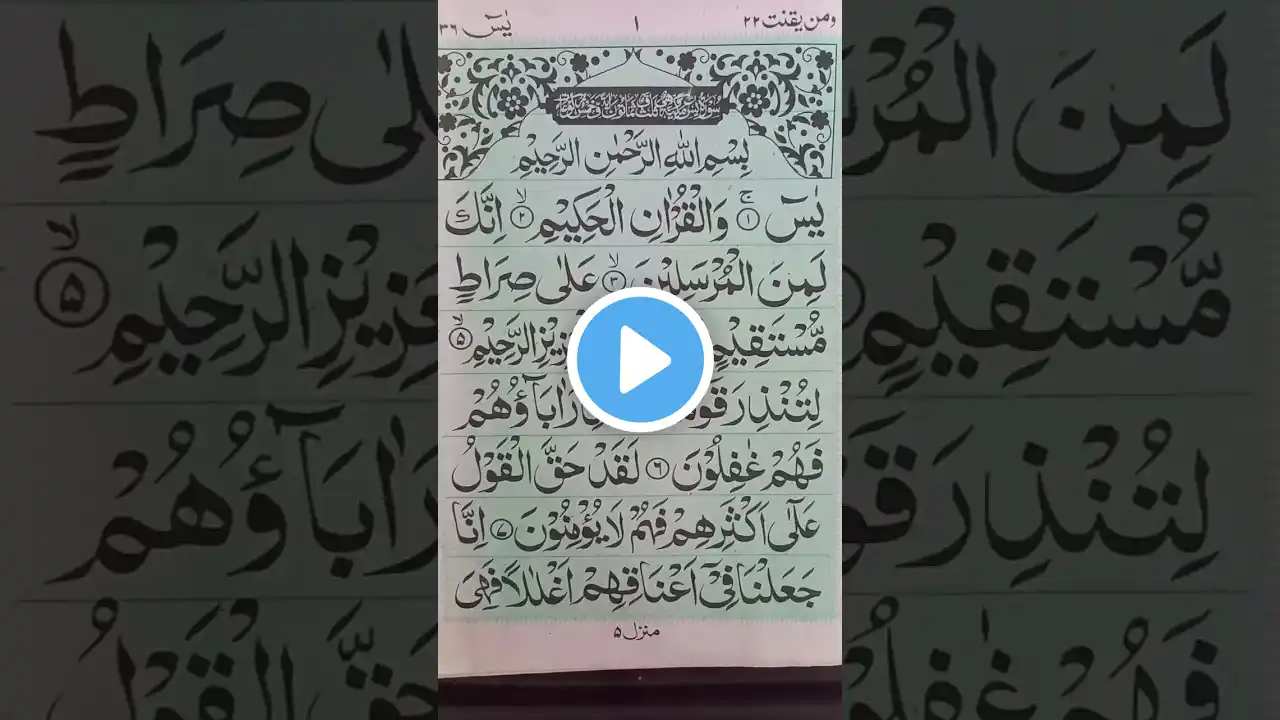 ومن يقنت ٢٢ ١ يٰسٓ ٣٦
بِسْمِ اللّٰهِ الرَّحْمٰنِ الرَّحِيْمِ
يٰسٓ ۚ ١ وَالْقُرْاٰنِ الْحَكِيْمِ ۙ ٢ اِنَّكَ
لَمِنَ الْمُرْسَلِيْنَ ۙ ٣ عَلٰى صِرَاطٍ
مُّسْتَقِيْمٍ الرَّحِيْمِ ۙ ٥
لِتُنْذِرَ اٰبَآؤُهُمْ
فَهُمْ غٰفِلُوْنَ ٦ لَقَدْ حَقَّ الْقَوْلُ
عَلٰٓى اَكْثَرِهِمْ فَهُمْ لَا يُؤْمِنُوْنَ ٧ اِنَّا
جَعَلْنَا فِيْٓ اَعْنَاقِهِمْ اَغْلٰلًا فَهِيَ
منزل ٥